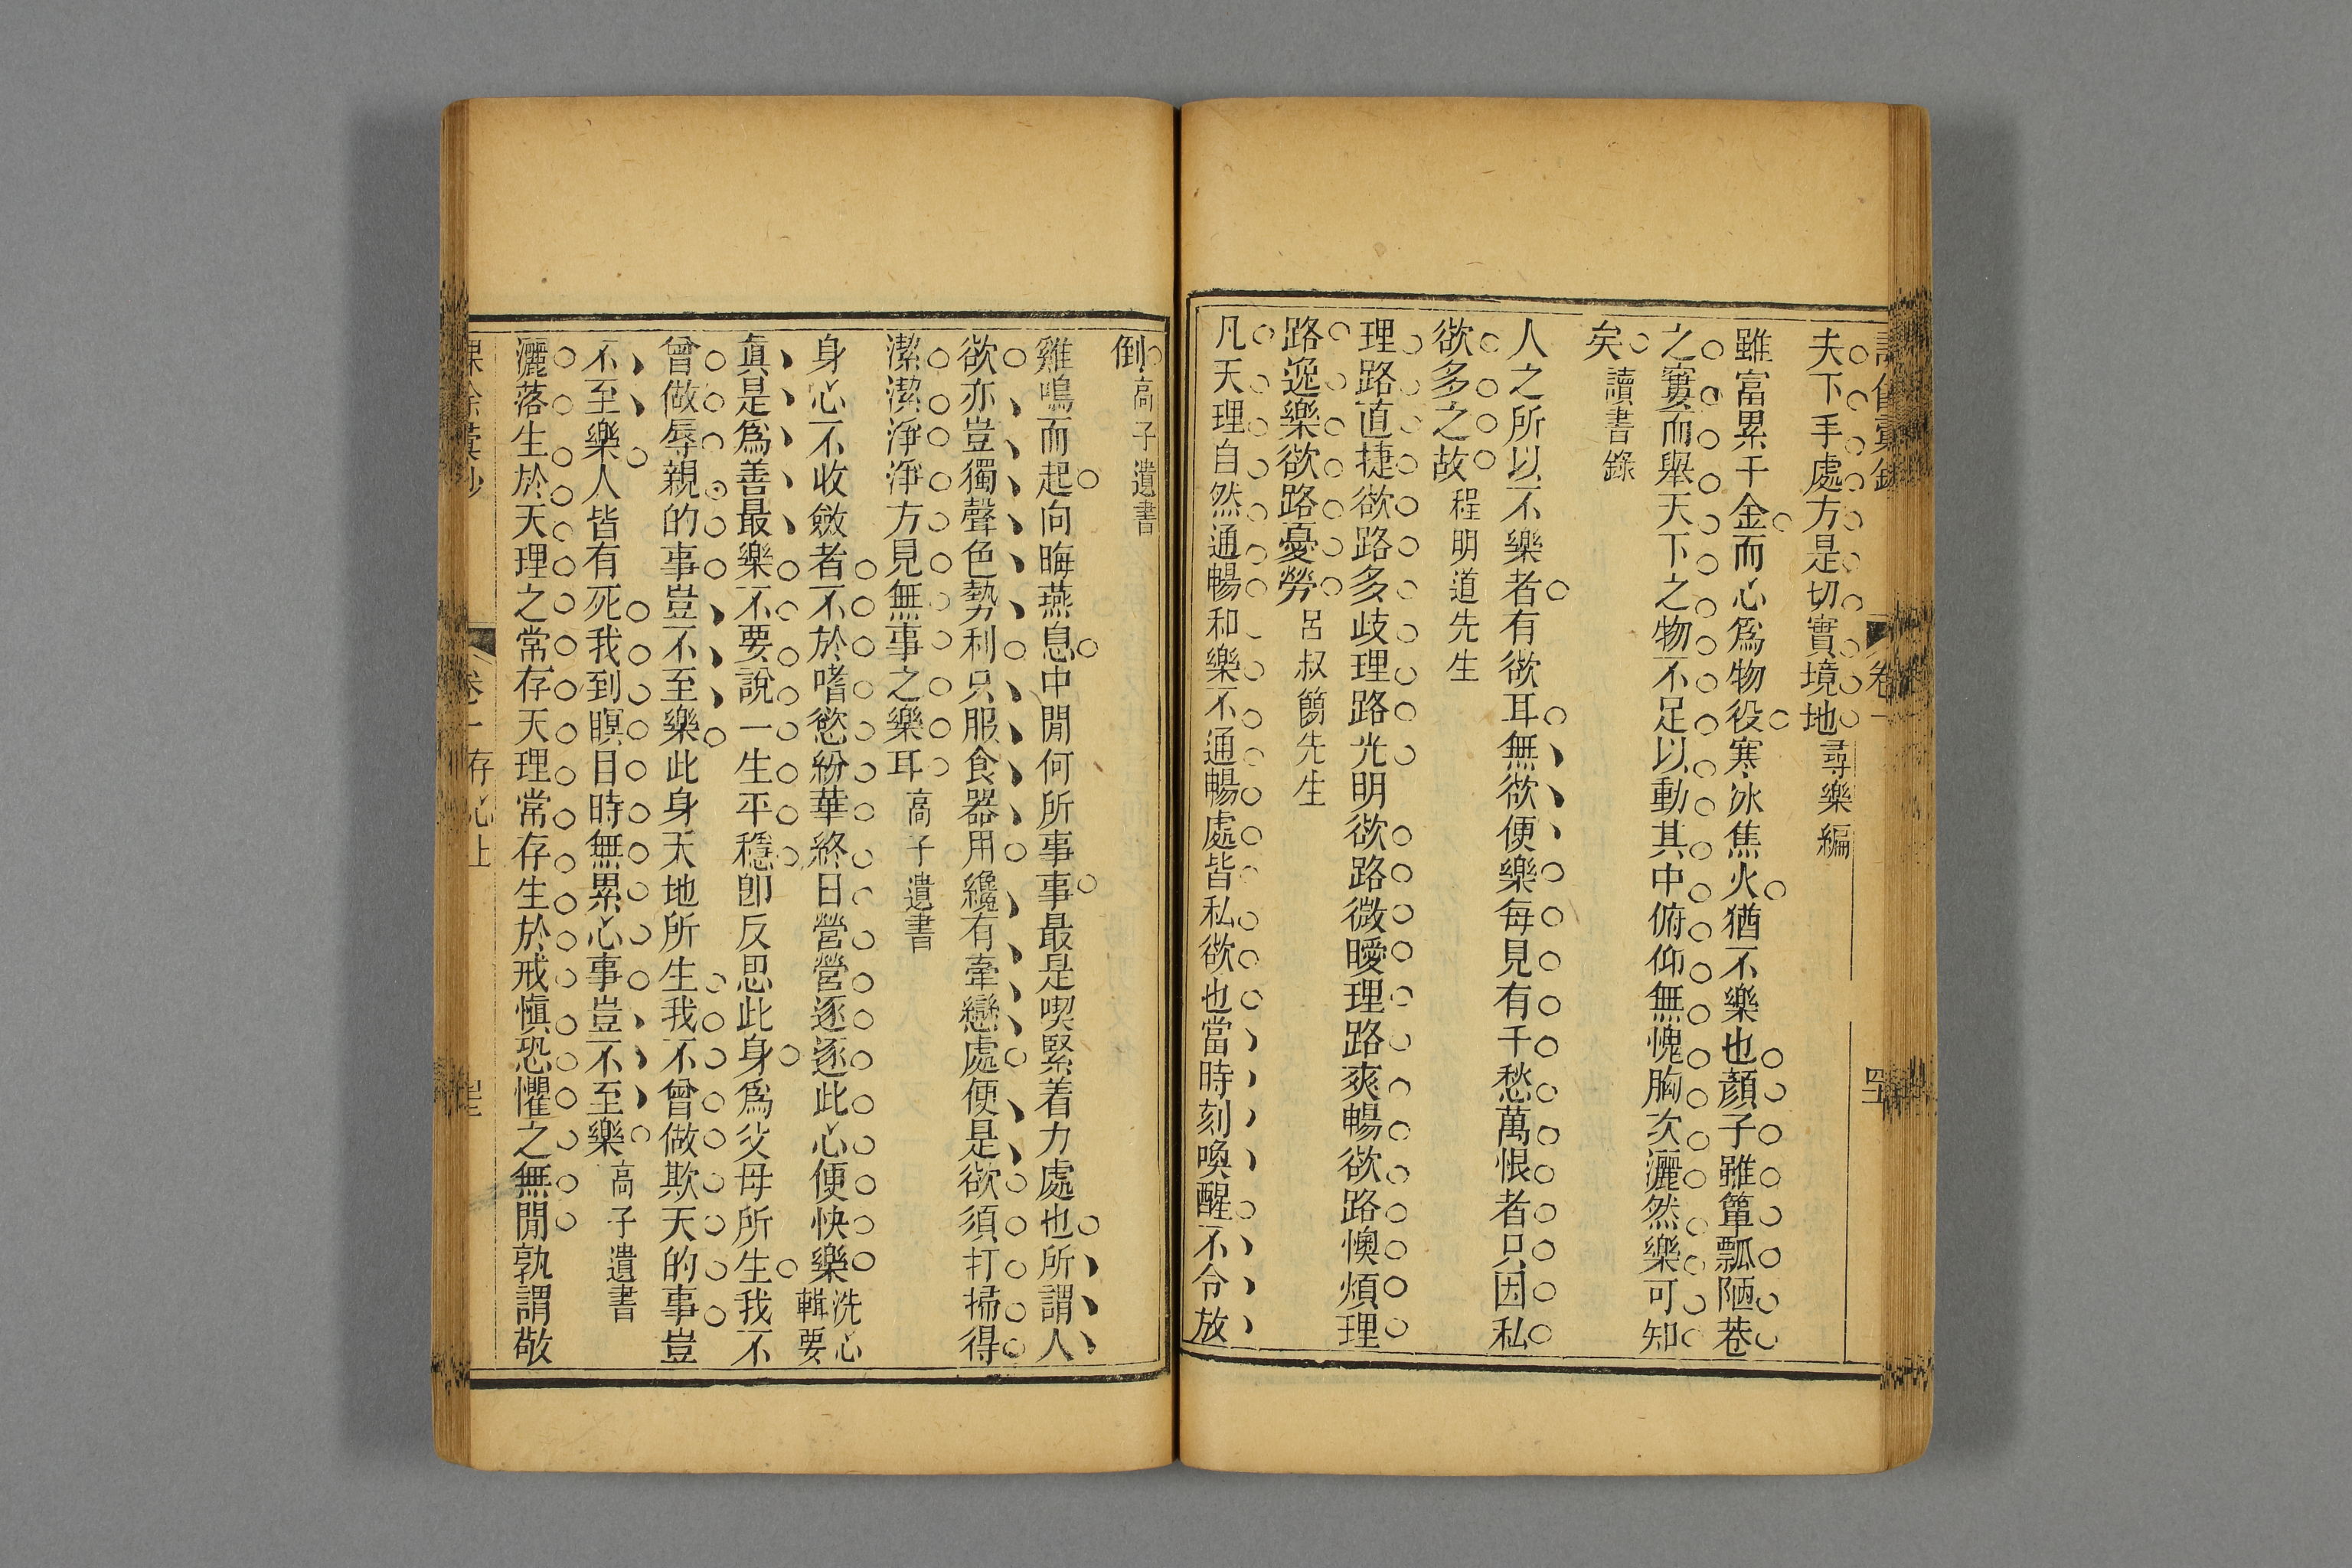 卷一
夫下手處方是切實境地尋樂編
雖富累千金而心爲物役寒冰焦火猶不樂也顏子雖簞瓢陋巷
之窶而舉天下之物不足以動其中俯仰無愧胸次灑然樂可知
矣讀書錄
人之所以不樂者有欲耳無欲便樂每見有千愁萬恨者只因私
欲多之故程明道先生
理路直捷欲路多歧理路光明欲路微曖理路爽暢欲路懊煩理
路逸樂欲路憂勞呂叔簡先生
凡天理自然通暢和樂不通暢處皆私欲也當時刻喚醒不令放
倒高子遺書
雞鳴而起向晦燕息中閒何所事事最是喫緊着力處也所謂人
欲亦豈獨聲色勢利只服食器用纔有牽戀處便是欲須打掃得
潔潔淨淨方見無事之樂耳高子遺書
身心不收斂者不於嗜慾紛華終日營營逐逐此心便快樂洗心輯要
眞是爲善最樂不要說一生平穩卽反思此身爲父母所生我不
曾做辱親的事豈不至樂此身天地所生我不曾做欺天的事豈
不至樂人皆有死我到瞑目時無累心事豈不至樂高子遺書
灑落生於天理之常存天理常存生於戒愼恐懼之無閒孰謂敬
卷一 存心上